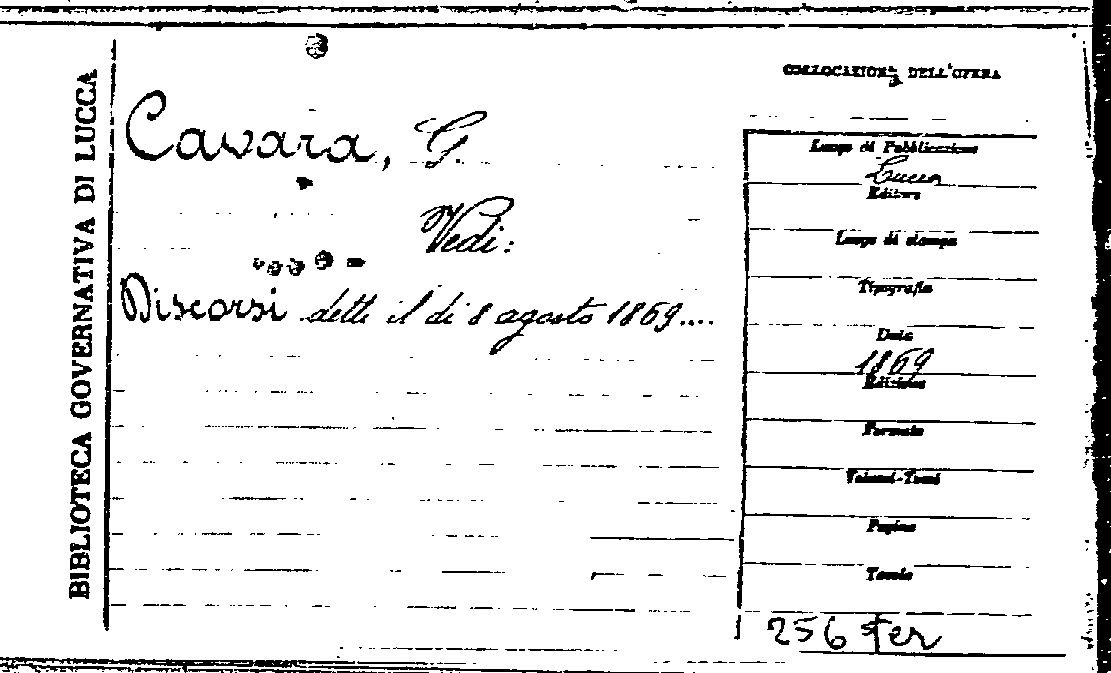 BIBLIOTECA GOVERNATIVA DI LUCCA
Cavara, G.
Vedi:
Discorsi detti il dì 8 agosto 1869....
COLLOCAZIONE DELL'OPERA
Luogo di Pubblicazione
Lucca
Editore
Luogo di stampa
Tipografia
Data
1869
Edizione
Formato
Volumi-Tomi
Pagine
Tavole
256 Fer